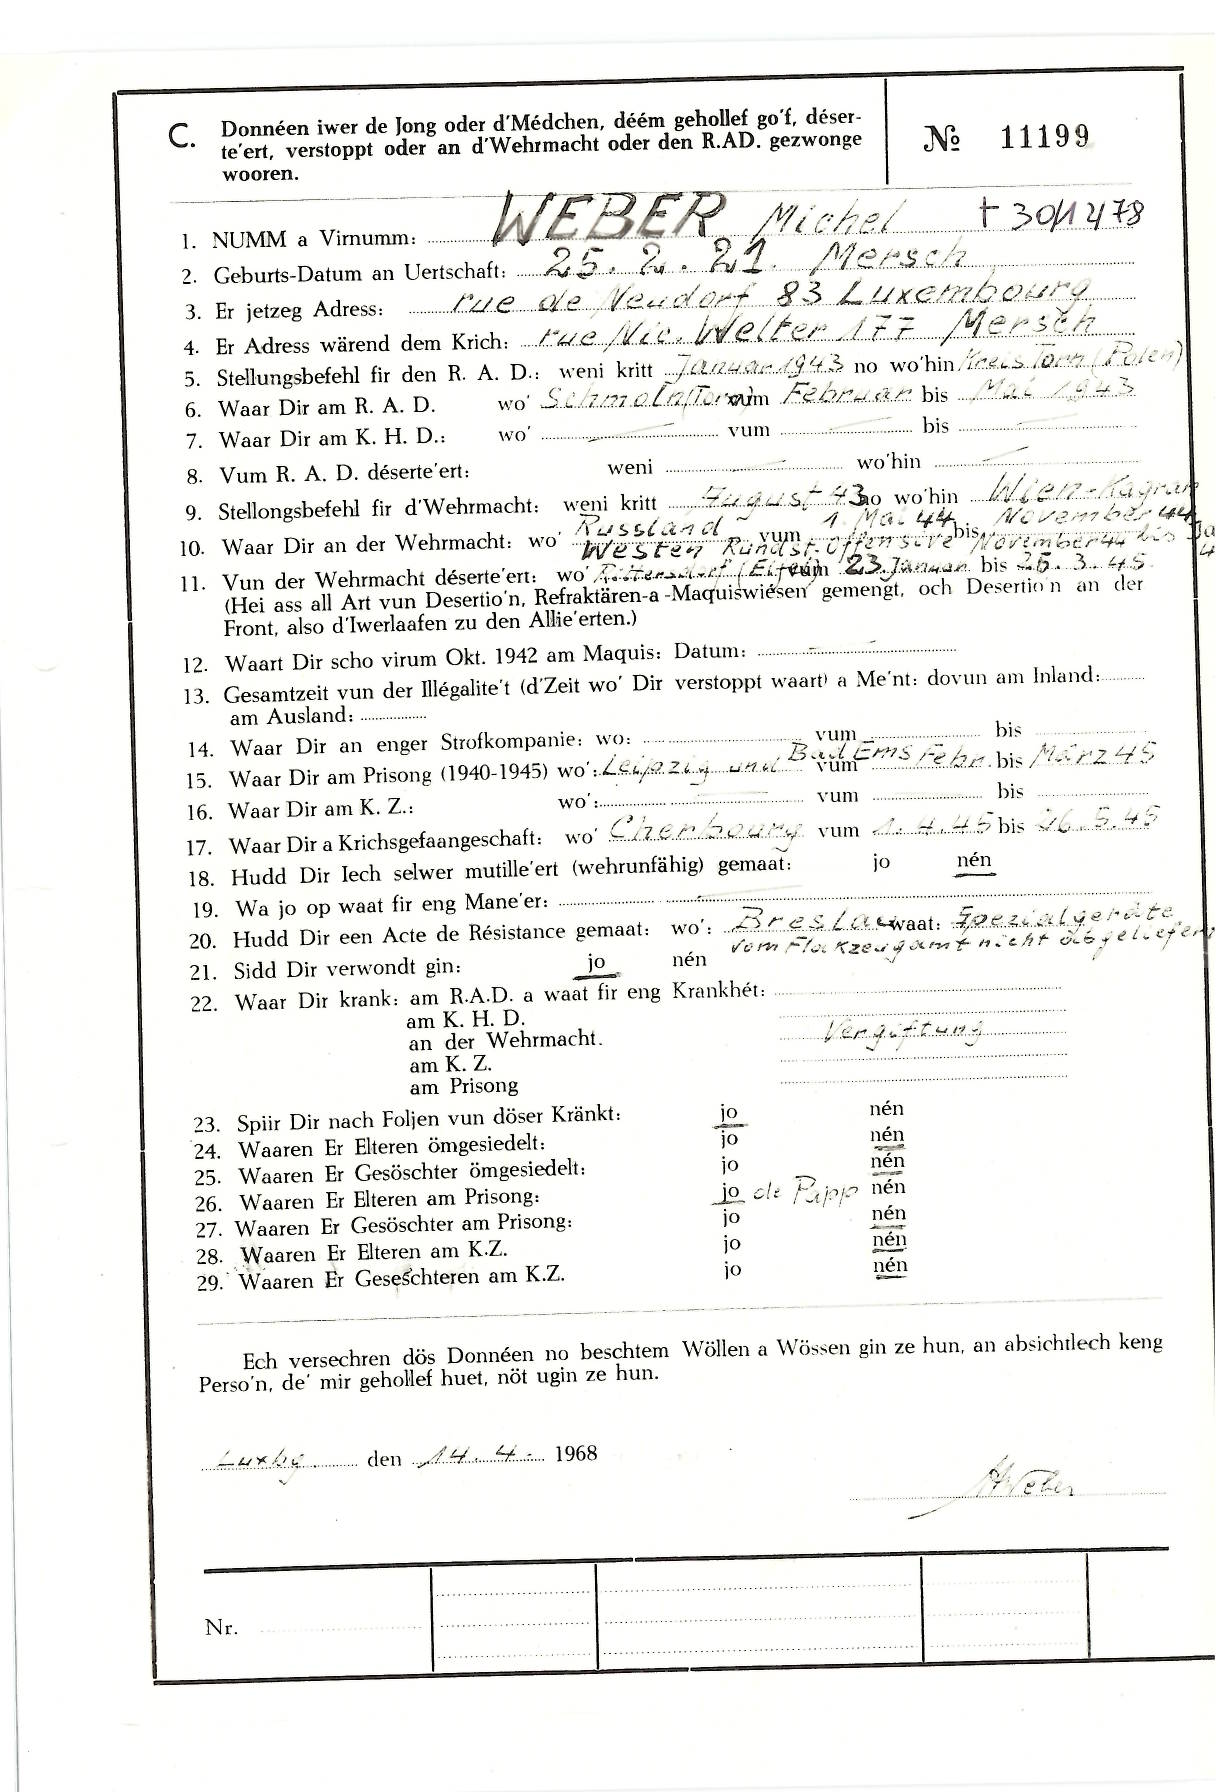 C. Donnéen iwer de Jong oder d'Médchen, déém gehollef go'f, déser-
te'ert, verstoppt oder an d'Wehrmacht oder den R.AD. gezwonge
wooren.
№ 11199
1. NUMM a Virnumm: WEBER Michel
2. Geburts-Datum an Uertschaft: 25. 2. 21. Mersch
3. Er jetzeg Adress: rue de Neudorf 83 Luxembourg
4. Er Adress wärend dem Krich: rue Nic. Welter 177 Mersch
5. Stellungsbefehl fir den R. A. D.: weni kritt Januar 1943 no wo'hin Kreis Torn (Polen)
6. Waar Dir am R. A. D. wo' Schmoln (Torn) vum Februar bis Mai 1943
7. Waar Dir am K. H. D.: wo' — vum — bis —
8. Vum R. A. D. déserte'ert: weni — wo'hin —
9. Stellongsbefehl fir d'Wehrmacht: weni kritt August 43 no wo'hin Wien-Kagran
10. Waar Dir an der Wehrmacht: wo' Russland vum 1. Mai 44 bis November 44
Westen Rundst. Offensive November 44 bis
11. Vun der Wehrmacht déserte'ert: wo' Rittersdorf (Eifel) vum 23. Januar bis 25. 3. 45.
(Hei ass all Art vun Desertio'n, Refraktären-a-Maquiswiésen gemengt, och Desertio'n an der
Front, also d'Iwerlaafen zu den Allie'erten.)
12. Waart Dir scho virum Okt. 1942 am Maquis: Datum: —
13. Gesamtzeit vun der Illégalite't (d'Zeit wo' Dir verstoppt waart) a Me'nt: dovun am Inland:
am Ausland:
14. Waar Dir an enger Strofkompanie: wo: vum bis
15. Waar Dir am Prisong (1940-1945) wo': Leipzig und Bad Ems vum Febr. bis März 45
16. Waar Dir am K. Z.: wo': vum bis
17. Waar Dir a Krichsgefaangeschaft: wo' Cherbourg vum 1. 4. 45 bis 26. 5. 45
18. Hudd Dir Iech selwer mutille'ert (wehrunfähig) gemaat: jo nén
19. Wa jo op waat fir eng Mane'er: —
20. Hudd Dir een Acte de Résistance gemaat: wo': Breslau waat: Spezialgeräte
vom Flakzeugamt nicht abgeliefert
21. Sidd Dir verwondt gin: jo nén
22. Waar Dir krank: am R.A.D. a waat fir eng Krankhét:
am K. H. D.
an der Wehrmacht. Vergiftung
am K. Z.
am Prisong
23. Spiir Dir nach Foljen vun döser Kränkt: jo nén
24. Waaren Er Elteren ömgesiedelt: jo nén
25. Waaren Er Gesöschter ömgesiedelt: jo nén
26. Waaren Er Elteren am Prisong: jo de Papp nén
27. Waaren Er Gesöschter am Prisong: jo nén
28. Waaren Er Elteren am K.Z. jo nén
29. Waaren Er Geseschteren am K.Z. jo nén
Ech versechren dös Donnéen no beschtem Wöllen a Wössen gin ze hun, an absichtlech keng
Perso'n, de' mir gehollef huet, nöt ugin ze hun.
Luxbg. den 14. 4. 1968
MWeber
Nr.